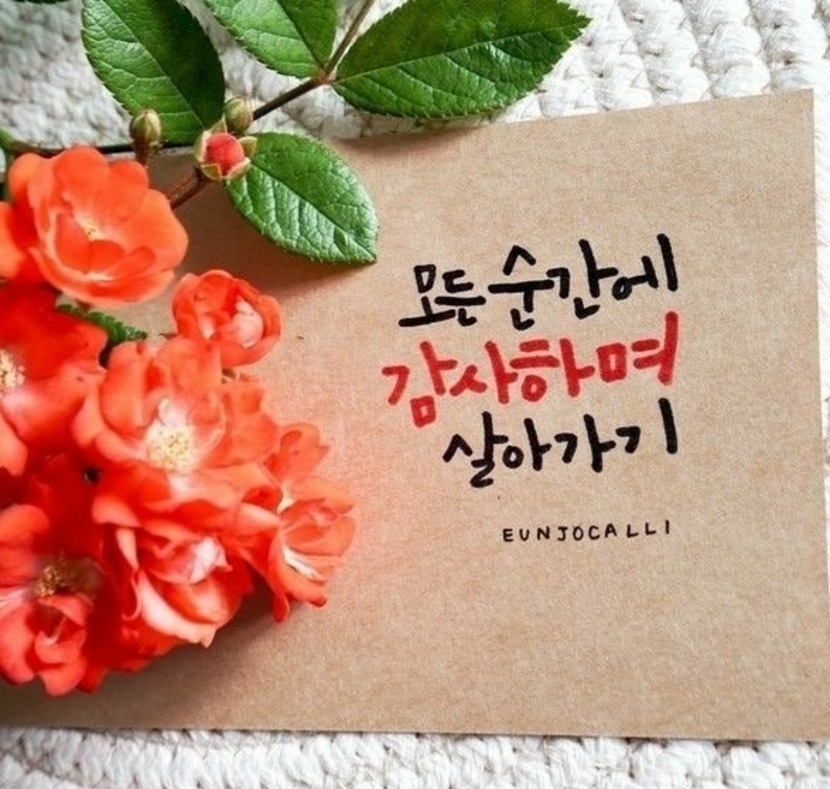 모든 순간에
감사하며
살아가기
EUNJOCALLI